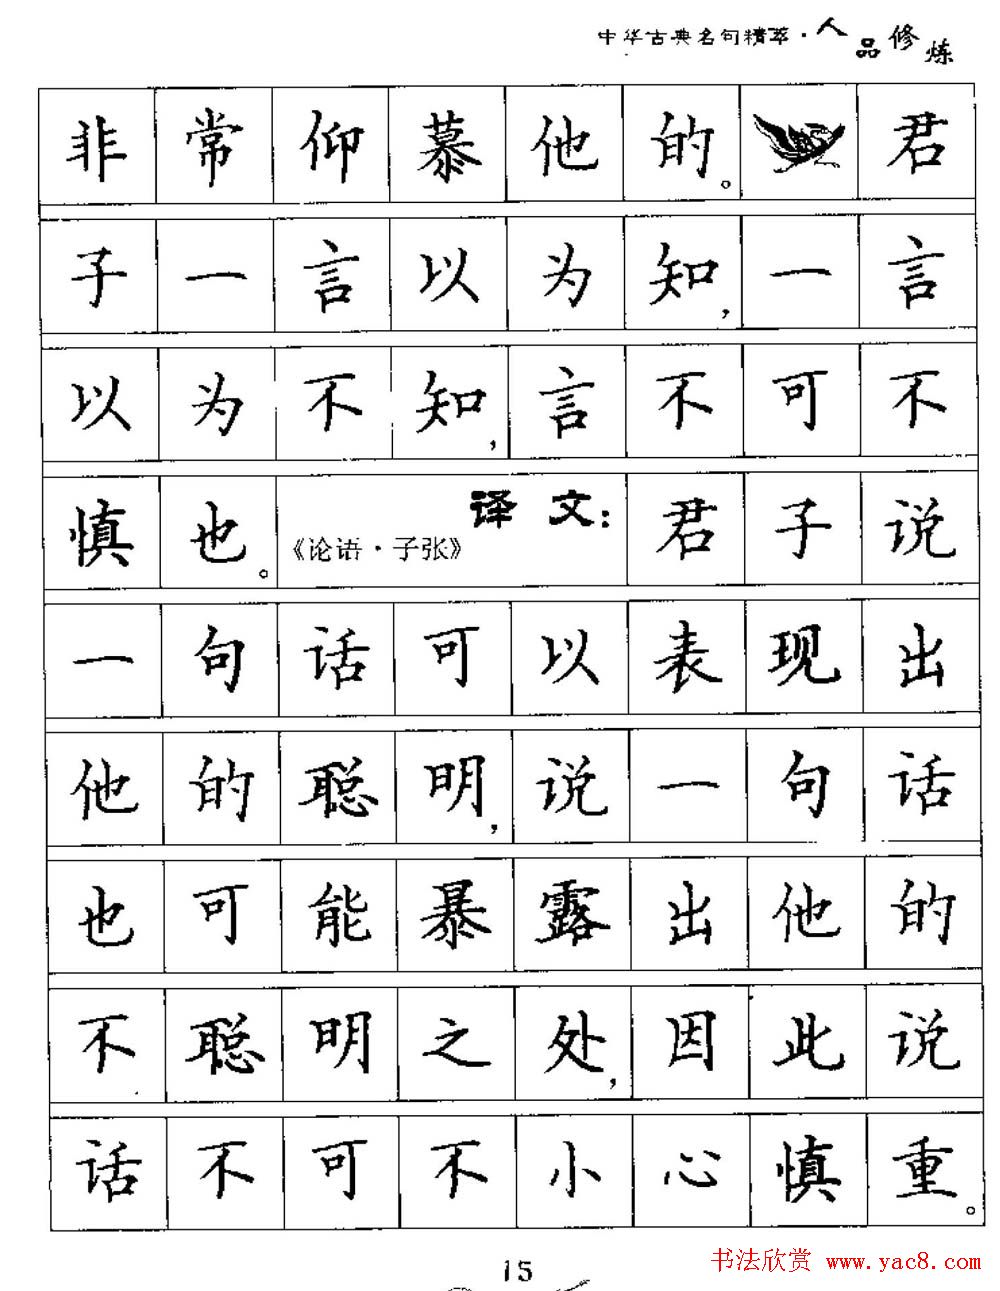 中华古典名句精萃·人品修炼
非常仰慕他的。君
子一言以为知,一言
以为不知,言不可不
慎也。《论语·子张》译文:君子说
一句话可以表现出
他的聪明,说一句话
也可能暴露出他的
不聪明之处,因此说
话不可不小心慎重。
15
书法欣赏 www.yac8.com